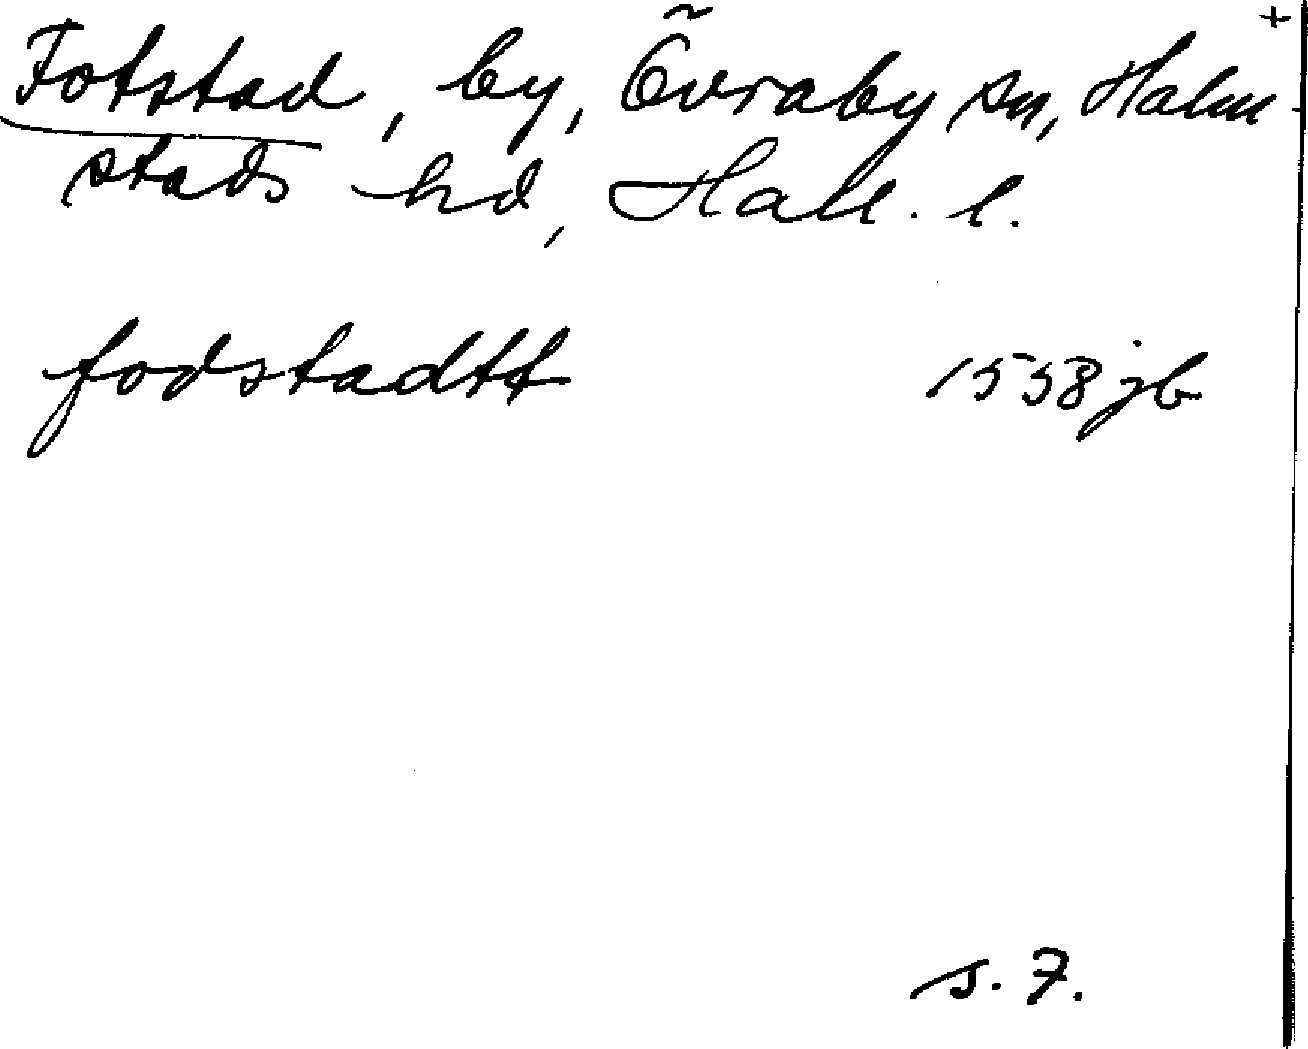 +
Fotstad, by, Övraby sn, Halm-
stads hd, Hall. l.
fodstadtt 1558 jb
s. 7.